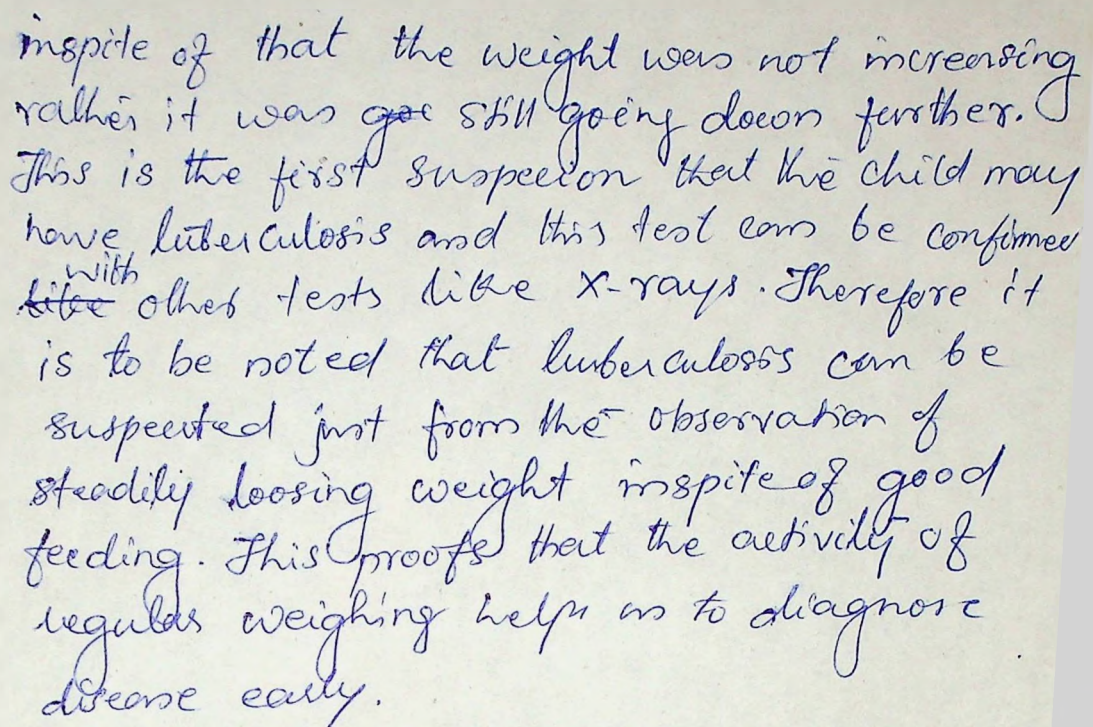 inspite of that the weight was not increasing
rather it was goe still going down further.
This is the first suspecion that the child may
have tuberculosis and this test can be confirmed
with
like other tests like X-rays. Therefore it
is to be noted that tuberculosis can be
suspected just from the observation of
steadily loosing weight inspite of good
feeding. This proofs that the activity of
regular weighing helps us to diagnose
disease early.